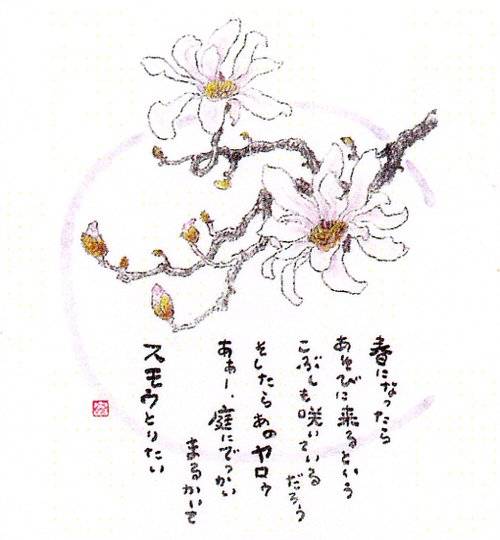 春になったら
あそびに来るという
こぶしも咲いている
だろう
そしたらあのヤロゥ
あぁー、庭にでっかい
まるかいて
スモウとりたい